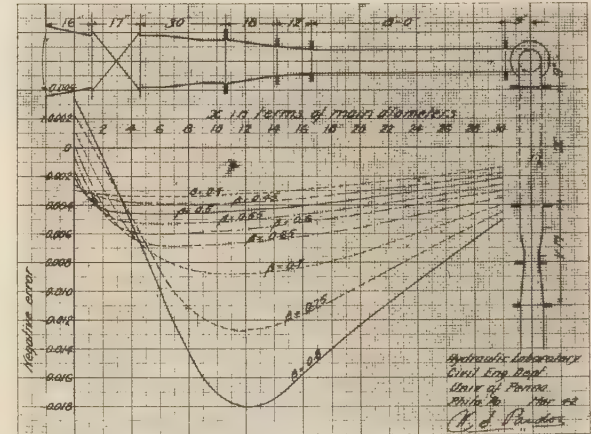 16" 17" 30" 18" 12" 8'-0 9"
x in terms of main diameters
2 4 6 8 10 12 14 16 18 20 22 24 26 28 30
0
0.002
0.004
0.006
0.008
-0.010
-0.012
-0.014
-0.016
-0.018
Negative error
β=0.4
β=0.45
β=0.5
β=0.55
β=0.6
β=0.65
β=0.7
β=0.75
β=0.8
Hydraulic Laboratory
Civil Eng Dept
Univ of Penna
Phila Pa Mar 42